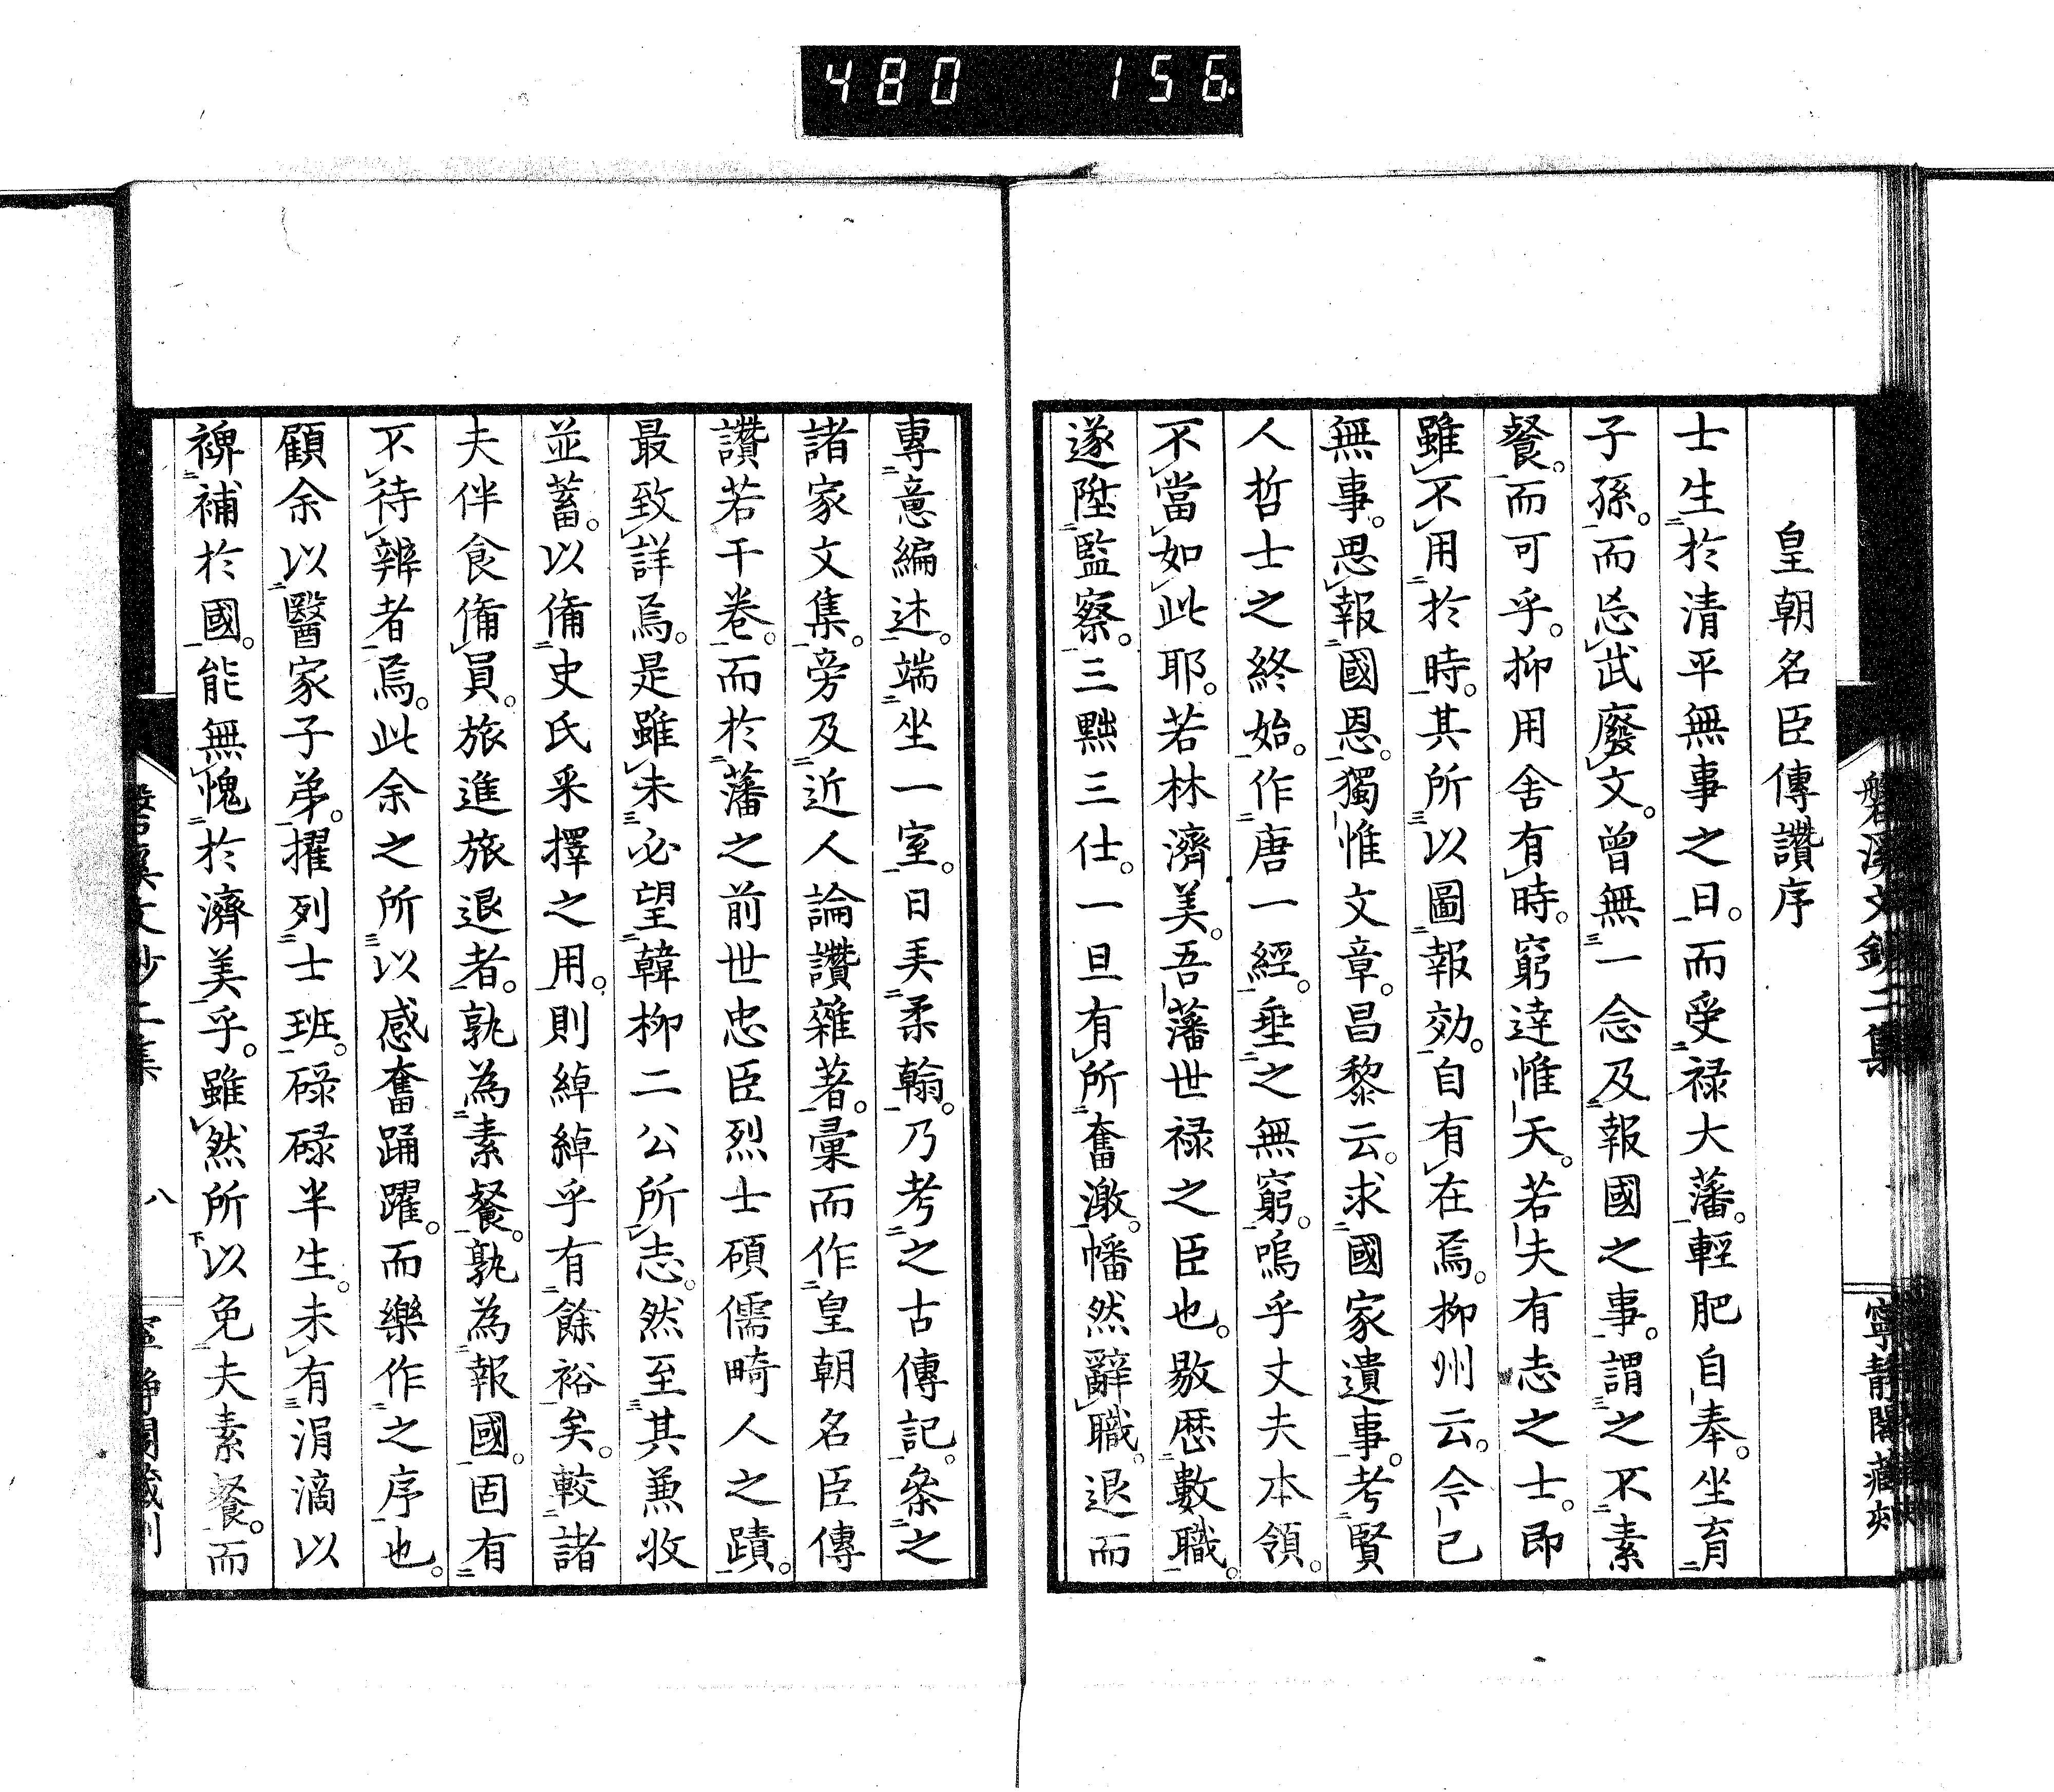 480 156
磐溪文鈔二集
寧靜閣藏刻
皇朝名臣傳讚序
士生於清平無事之日。而受祿大藩。輕肥自奉。坐育
子孫。而忘武廢文。曾無一念及報國之事。謂之不素
餐。而可乎。抑用舍有時。窮達惟天。若夫有志之士。即
雖不用於時。其所以圖報効。自有在焉。柳州云。今已
無事。思報國恩。獨惟文章。昌黎云。求國家遺事。考賢
人哲士之終始。作唐一經。垂之無窮。嗚乎丈夫本領。
不當如此耶。若林濟美。吾藩世祿之臣也。敭歷數職。
遂陞監察。三黜三仕。一旦有所奮激。幡然辭職。退而
專意編述。端坐一室。日弄柔翰。乃考之古傳記。叅之
諸家文集。旁及近人論讚雜著。彙而作皇朝名臣傳
讚若干卷。而於藩之前世忠臣烈士碩儒畸人之蹟。
最致詳焉。是雖未必望韓柳二公所志。然至其兼收
並蓄。以備史氏采擇之用。則綽綽乎有餘裕矣。較諸
夫伴食備員。旅進旅退者。孰為素餐。孰為報國。固有
不待辨者焉。此余之所以感奮踊躍。而樂作之序也。
顧余以醫家子弟。擢列士班。碌碌半生。未有涓滴以
裨補於國。能無愧於濟美乎。雖然所以免夫素餐。而
八